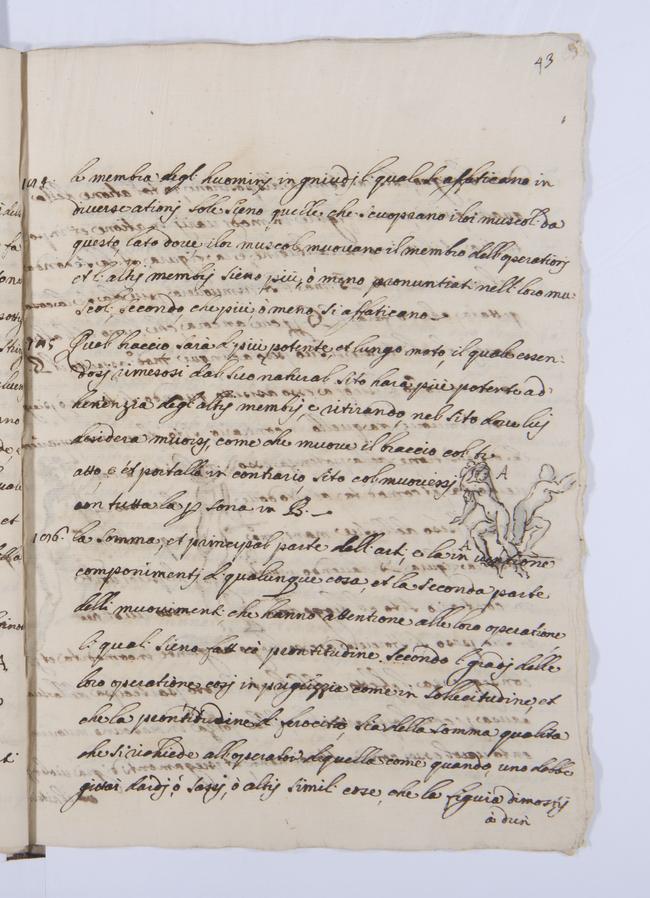 43
le membra degl' huominj in gniudj li quali si affaticano in
diverse ationj sole sieno quelle, che scuoprano i loi muscoli da
questo lato doue i loi muscoli muouano il membro dell'operationj
et li altrj membrj sieno più, ò meno pronuntiati nelli loro mu
scoli, secondo che più o meno si affaticano
Quel braccio sara di più potente, et lungo moto, il quale essen:
dosj rimosso dal suo naturale sito hara più potente ad
herenzia degl'altrj membrj, e ritirando, nel sito doue luj
desidera muorsj, come che muoue il braccio col
atto e et portallo in contrario sito col muouersj A
con tutta la p sona in B. A
1016. la somma, et principal parte dell'art, e la inuentione
componimentj di qualunque cosa, et la seconda parte
delli mouiment, che hanno attentione alle loro operatione
li quali sieno fatti cō prontitudine, secondo li gradj delle
loro operatione, cosj in prigrizia come in sollecitudine, et
che la prontitudine di ferocità, sia della somma qualita
che si richiede all'operator di quella come quando, uno debbe
gittar dardj, ò sassj, ò altrj simili cose, che la figura dimostrj
à dun